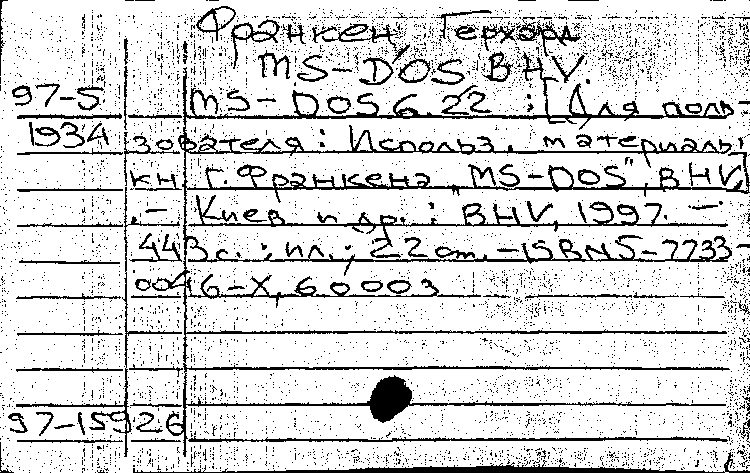 Франкен, Герхард
MS-DOS, BHV.
97-5 MS-DOS 6.22 : [Для поль-
1934 зователя : Использ. материалы
кн. Г. Франкена „MS-DOS", BHV]
.- Киев и др. : BHV, 1997. -
443 с. : ил. ; 22 см. -ISBN 5-7733-
0046-X, 6000 э
97-15926